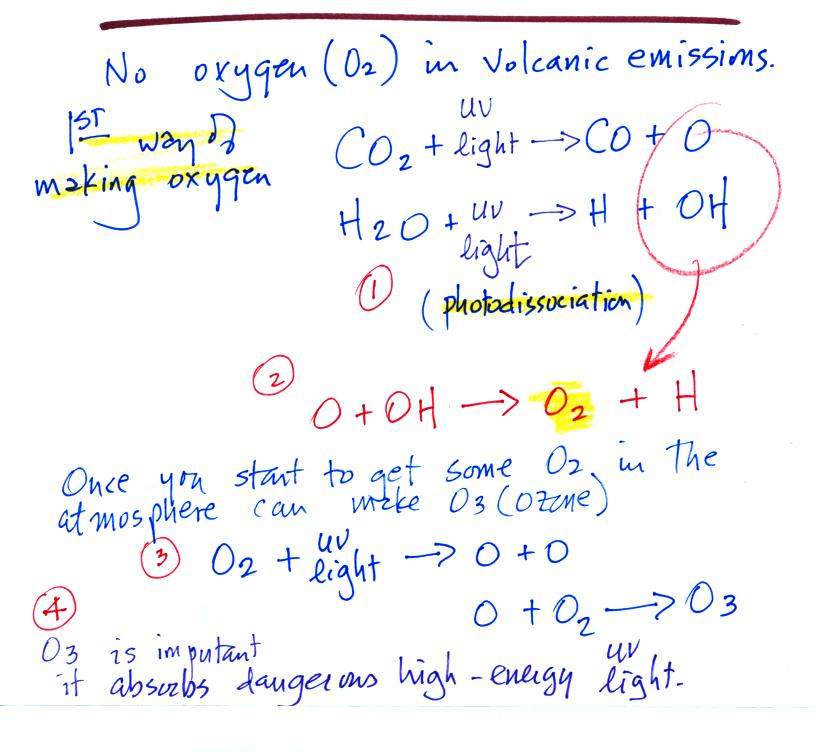 No oxygen (O2) in volcanic emissions.
1ST way of
making oxygen
CO2 + uv light → CO + O
H2O + uv light → H + OH
① (photodissociation)
② O + OH → O2 + H
Once you start to get some O2 in the
atmosphere can make O3 (ozone)
③ O2 + uv light → O + O
④ O + O2 → O3
O3 is important
it absorbs dangerous high-energy uv light.